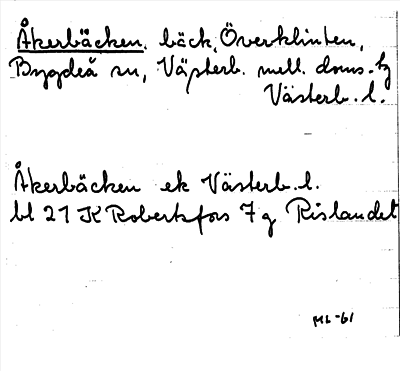 Åkerbäcken. bäck, Överklinten,
Bygdeå sn, Västerb. mell. doms. tg
Västerb. l.
Åkerbäcken ek Västerb. l.
bl 21 K Robertsfors 7 g Rislandet
ML-61